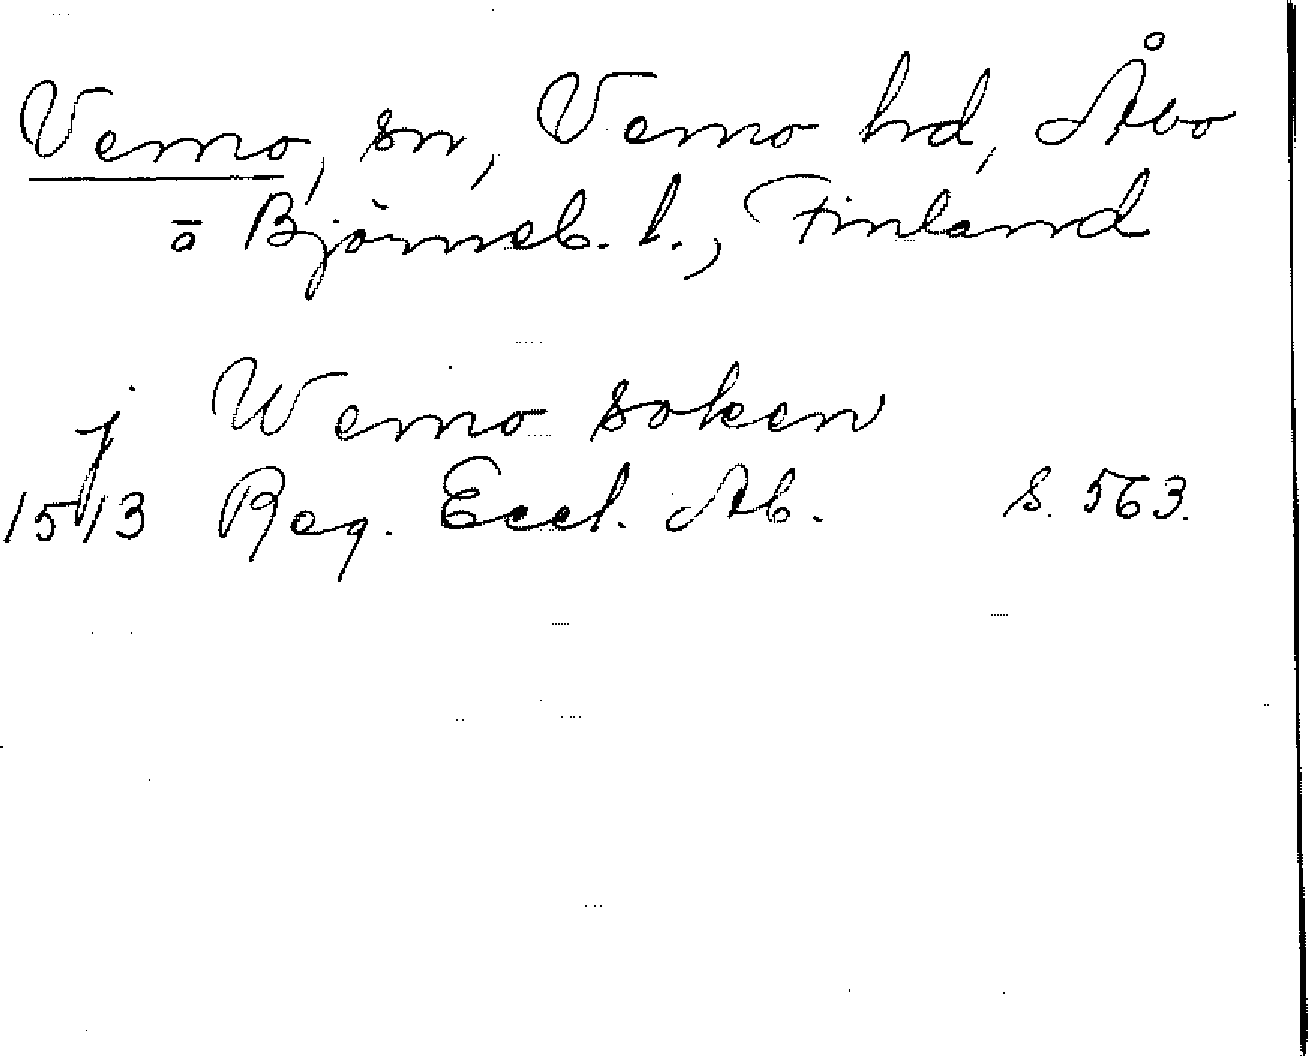 Vemo, sn, Vemo hd, Åbo
o Björneb. l., Finland
j Wemo soken
1513 Reg. Eccl. Ab. s. 563.